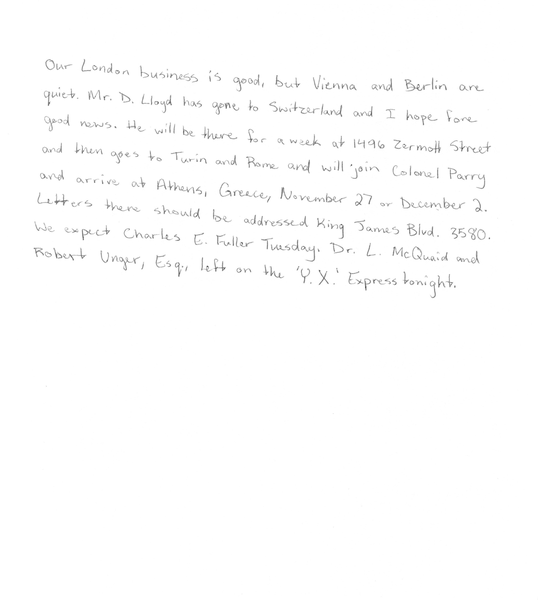 Our London business is good, but Vienna and Berlin are
quiet. Mr. D. Lloyd has gone to Switzerland and I hope fore
good news. He will be there for a week at 1496 Zermott Street
and then goes to Turin and Rome and will join Colonel Parry
and arrive at Athens, Greece, November 27 or December 2.
Letters there should be addressed King James Blvd. 3580.
We expect Charles E. Fuller Tuesday. Dr. L. McQuaid and
Robert Unger, Esq., left on the 'Y. X.' Express tonight.